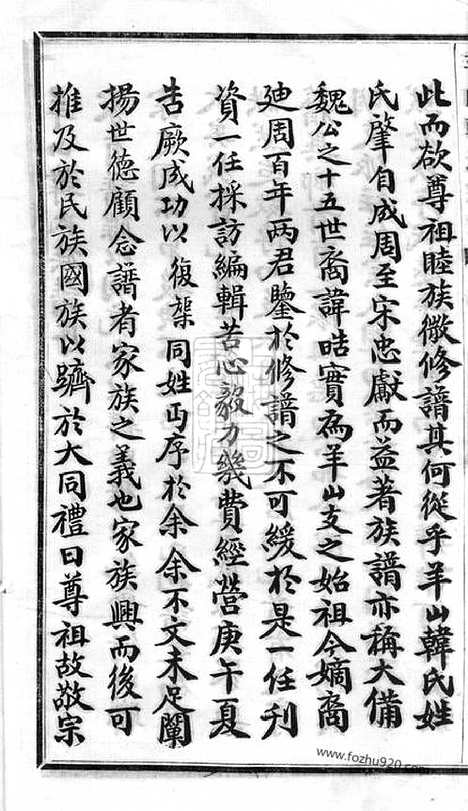 此而欲尊祖睦族微修譜其何從乎羊山韓氏姓
氏肇自成周至宋忠獻而益著族譜亦稱大備
魏公之十五世裔諱晧實為羊山支之始祖今嫡裔
廸周百年两君鑒於修譜之不可緩於是一任刋
資一任採訪編輯苦心毅力幾費經營庚午夏
告厥成功以復棃同姓丐序於余余不文未足闡
揚世德顧念譜者家族之義也家族興而後可
推及於民族國族以躋於大同禮曰尊祖故敬宗
www.fozhu920.com